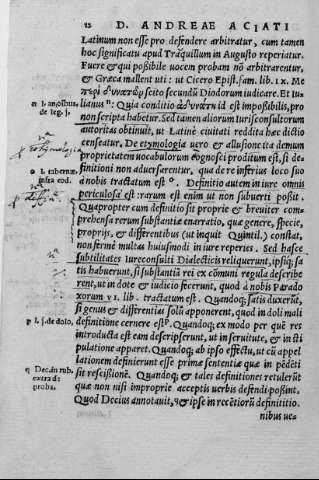 12 D. ANDREAE ACIATI
Latinum non esse pro defendere arbitratur, cum tamen
hoc significatu apud Trãquillum in Augusto reperiatur.
Fuere & qui poßibile uocem probam nõ arbitrarentur,
& Græca mallent uti: ut Cicero Epist. fam. lib. IX. Πε
scito secundũ Diodorum iudicare. Et Iu-
lianus n: Quia conditio id est impoßibilis, pro
n l. apud Iulianum. de leg. j.
non scripta habetur. Sed tamen aliorum Iurisconsultorum
autoritas obtinuit, ut Latinè ciuitati reddita hæc dictio
censeatur. De etymologia uero & allusione ita demum
etymologia
proprietatem uocabulorum cognosci proditum est, si de
finitioni non aduersarentur, qua de re inferius loco suo
à nobis tractatum est o. Definitio autem in iure omnis
o l. tabernæ. infra eod.
periculosa est: rarum est enim ut non subuerti poßit.
Quapropter cum definitio sit proprie & breuiter com-
prehensa rerum substantiæ enarratio, quæ genere, specie,
proprijs, & differentibus (ut inquit Quintil.) constat,
non ferme multas huiusmodi in iure reperies. Sed hasce
subtilitates iureconsulti Dialecticis reliquerunt, ipsiq́; sa
tis habuerunt, si substantiã rei ex cõmuni regula describe
rent, ut in dote & iudicio fecerunt, quod à nobis Parado
xorum VI. lib. tractatum est. Quandoq́; satis duxerũt,
si genus & differentias solũ apponerent, quod in doli mali
definitione cernere est p. Quandoq́; ex modo per què res
p l. j. de dolo.
introducta est eam descripserunt, ut in seruitute, & in sti
pulatione apparet. Quandoq́; ab ipso effectu, ut cũ appel
lationem definierunt esse primæ sententiæ quæ in pèdèti
sit rescißionè. Quandoq́; & tales definitiones retulerũt
q Dec. in rub. extra de proba.
quæ non nisi improprie acceptis uerbis defendi poßint.
Quod Decius annotauit, q & ipse in recètiorũ definitio.
nibus ue-